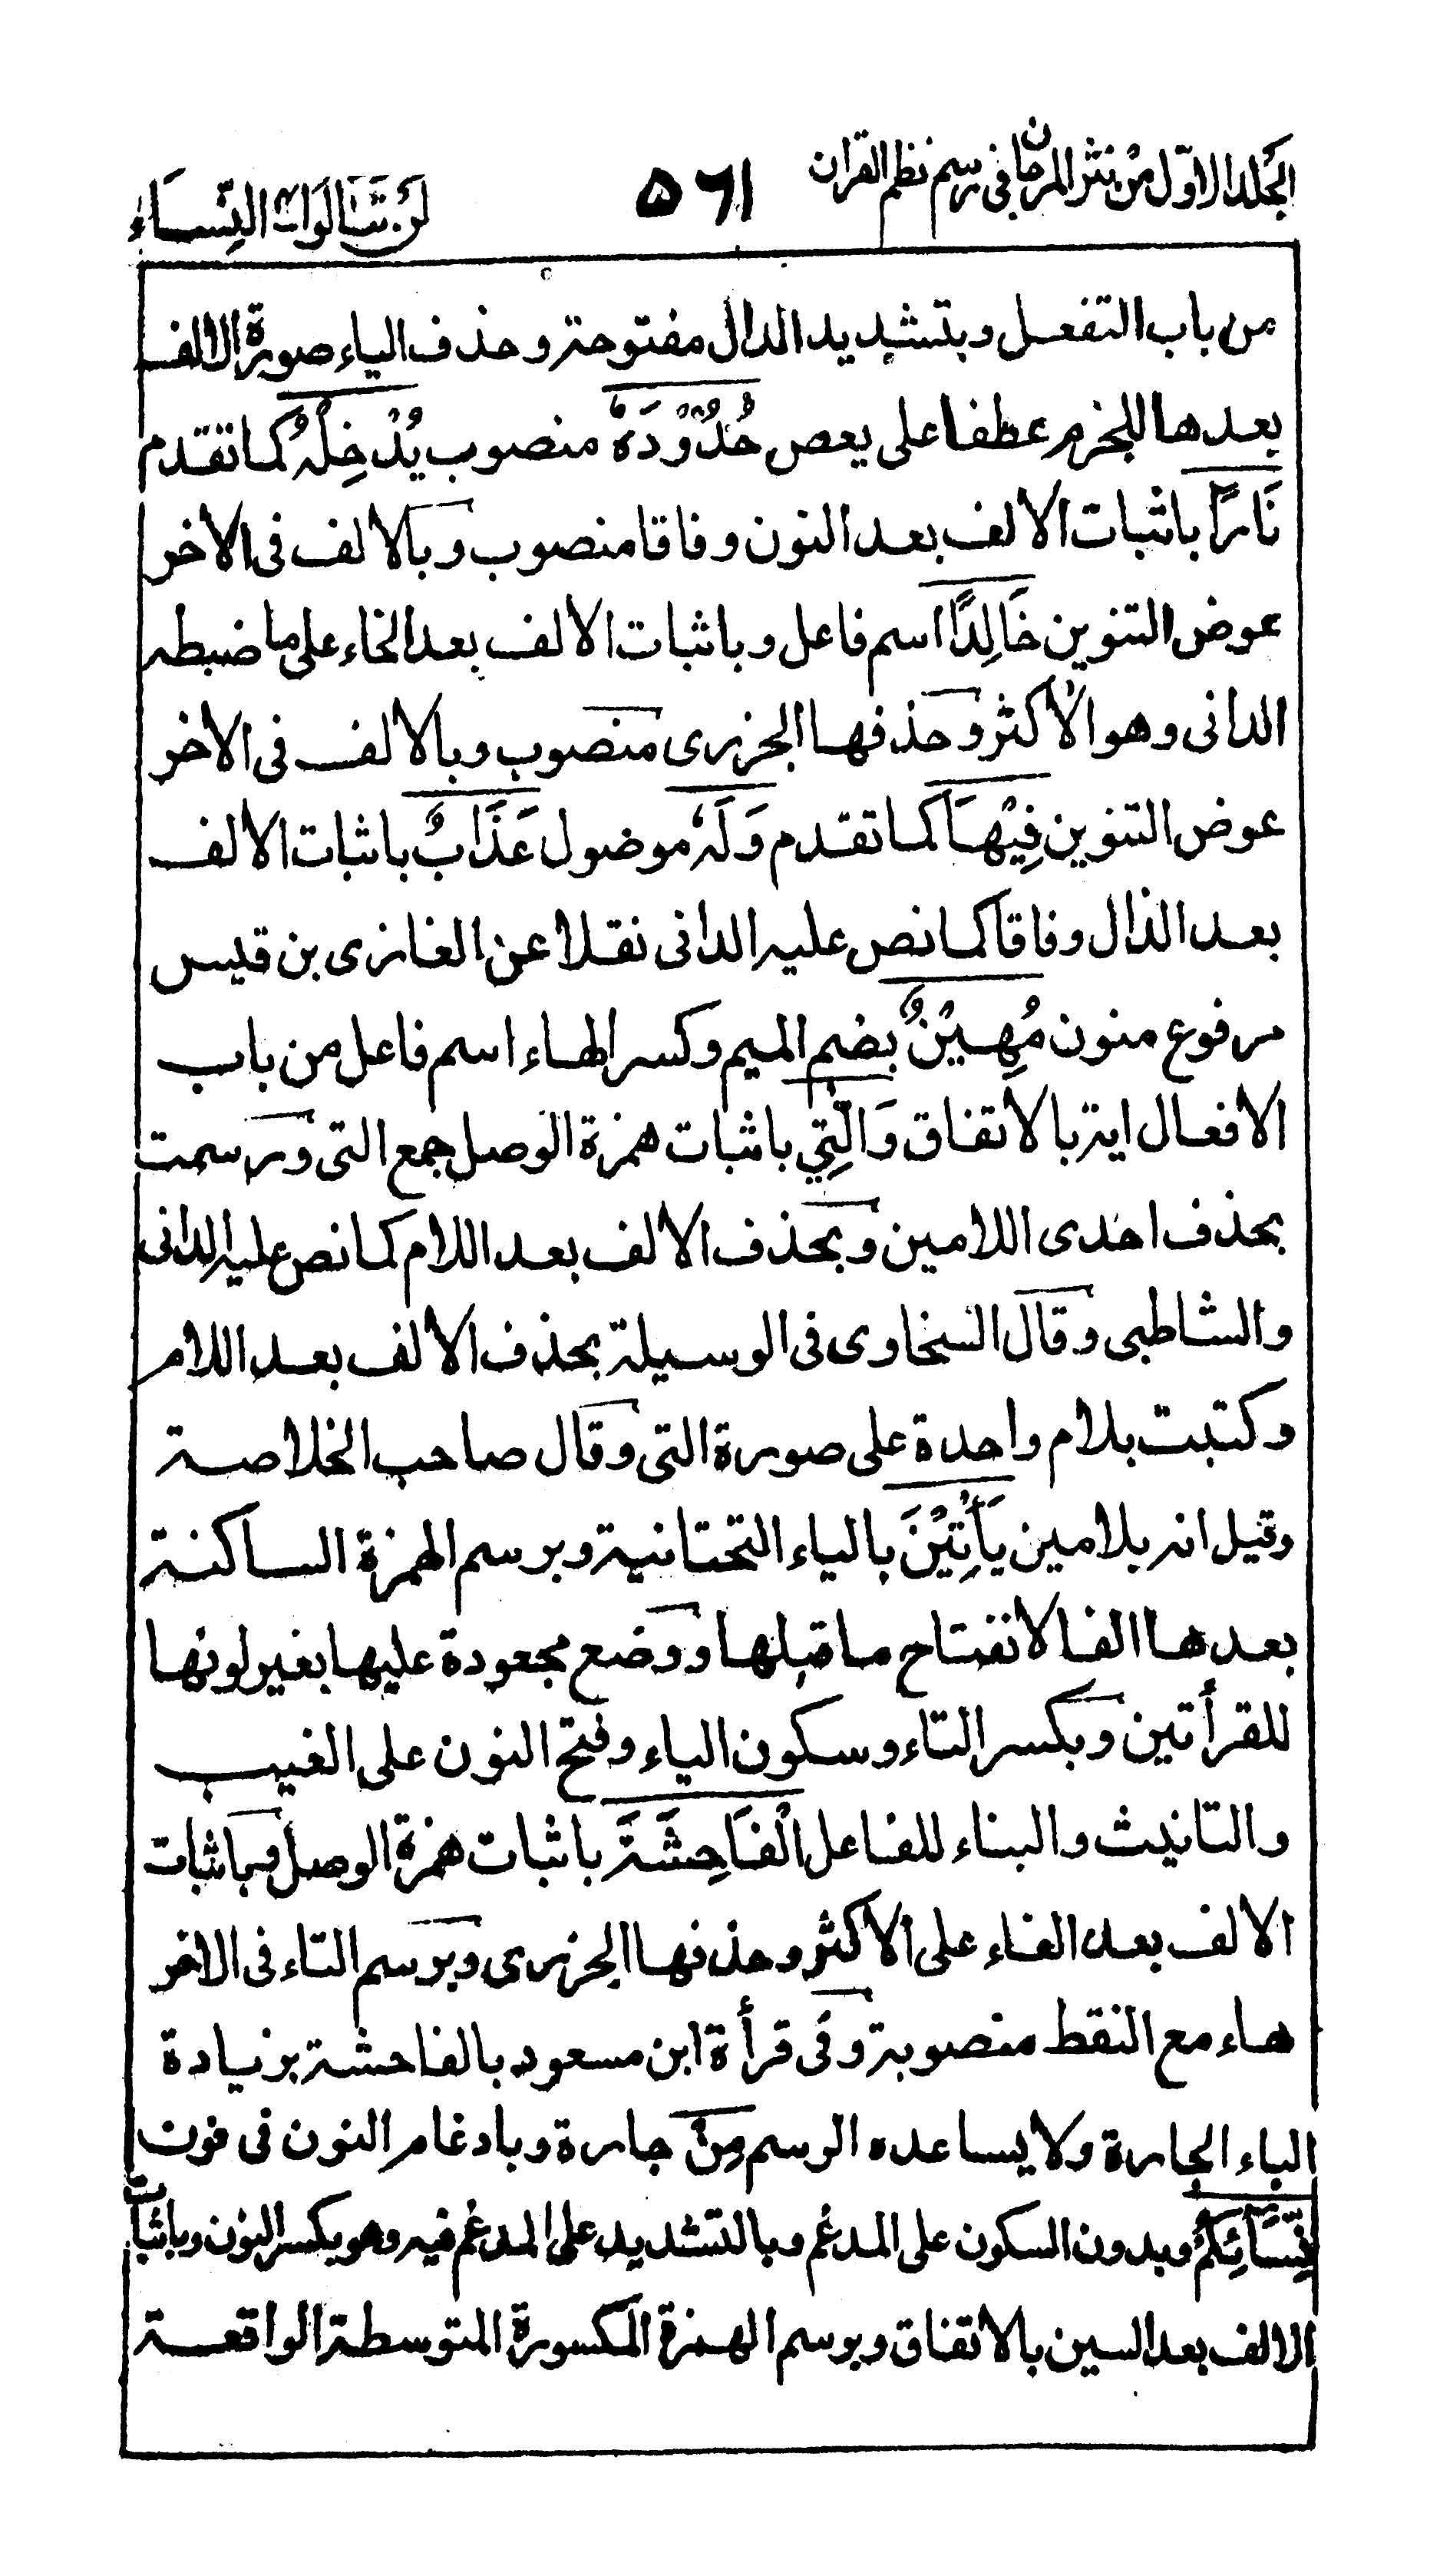 الجلد الاول من نثر المرجان فى رسم نظم القران
٥٦١
لن تنالوا النساء
من باب التفعل وبتشديد الدال مفتوحة وحذف الياء صورة الالف
بعدها للجزم عطفا على يعص حُدُوْدَهٗ منصوب يُدْخِلْهُ كما تقدم
نَارًا باثبات الالف بعد النون وفاقا منصوب وبالالف فى الاخر
عوض التنوين خَالِدًا اسم فاعل وباثبات الالف بعد الخاء على ما ضبطه
الدانى وهو الاكثر وحذفها الجزرى منصوب وبالالف فى الاخر
عوض التنوين فِيْهَا كما تقدم وَلَهٗ موضول عَذَابٌ باثبات الالف
بعد الذال وفاقا كما نص عليه الدانى نقلا عن الغازى بن قيس
مرفوع منون مُهِيْنٌ بضم الميم وكسر الهاء اسم فاعل من باب
الافعال اية بالاتفاق وَالّٰتِيْ باثبات همزة الوصل جمع التى ورسمت
بحذف احدى اللامين وبحذف الالف بعد اللام كما نص عليه الدانى
والشاطبى وقال السخاوى فى الوسيلة بحذف الالف بعد اللام
وكتبت بلام واحدة على صورة التى وقال صاحب الخلاصة
وقيل انه بلامين يَأْتِيْنَ بالياء التحتانية وبرسم الهمزة الساكنة
بعدها الفا لانفتاح ما قبلها ووضع مجعودة عليها بغير لونها
للقرأتين وبكسر التاء وسكون الياء وفتح النون على الغيب
والتانيث والبناء للفاعل الْفَاحِشَةَ باثبات همزة الوصل وباثبات
الالف بعد الفاء على الاكثر وحذفها الجزرى وبرسم التاء فى الاخر
هاء مع النقط منصوبة وفى قرأة ابن مسعود بالفاحشة بزيادة
الباء الجارة ولا يساعده الرسم مِنْ جارة وبادغام النون فى نون
نِّسَآئِكُمْ وبدون السكون على المدغم وبالتشديد على المدغم فيه وهو بكسر النون وباثبات
الالف بعد السين بالاتفاق وبرسم الهمزة المكسورة المتوسطة الواقعة